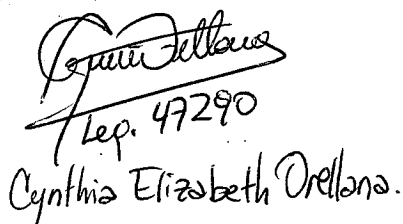 Leg. 47290
Cynthia Elizabeth Orellana.